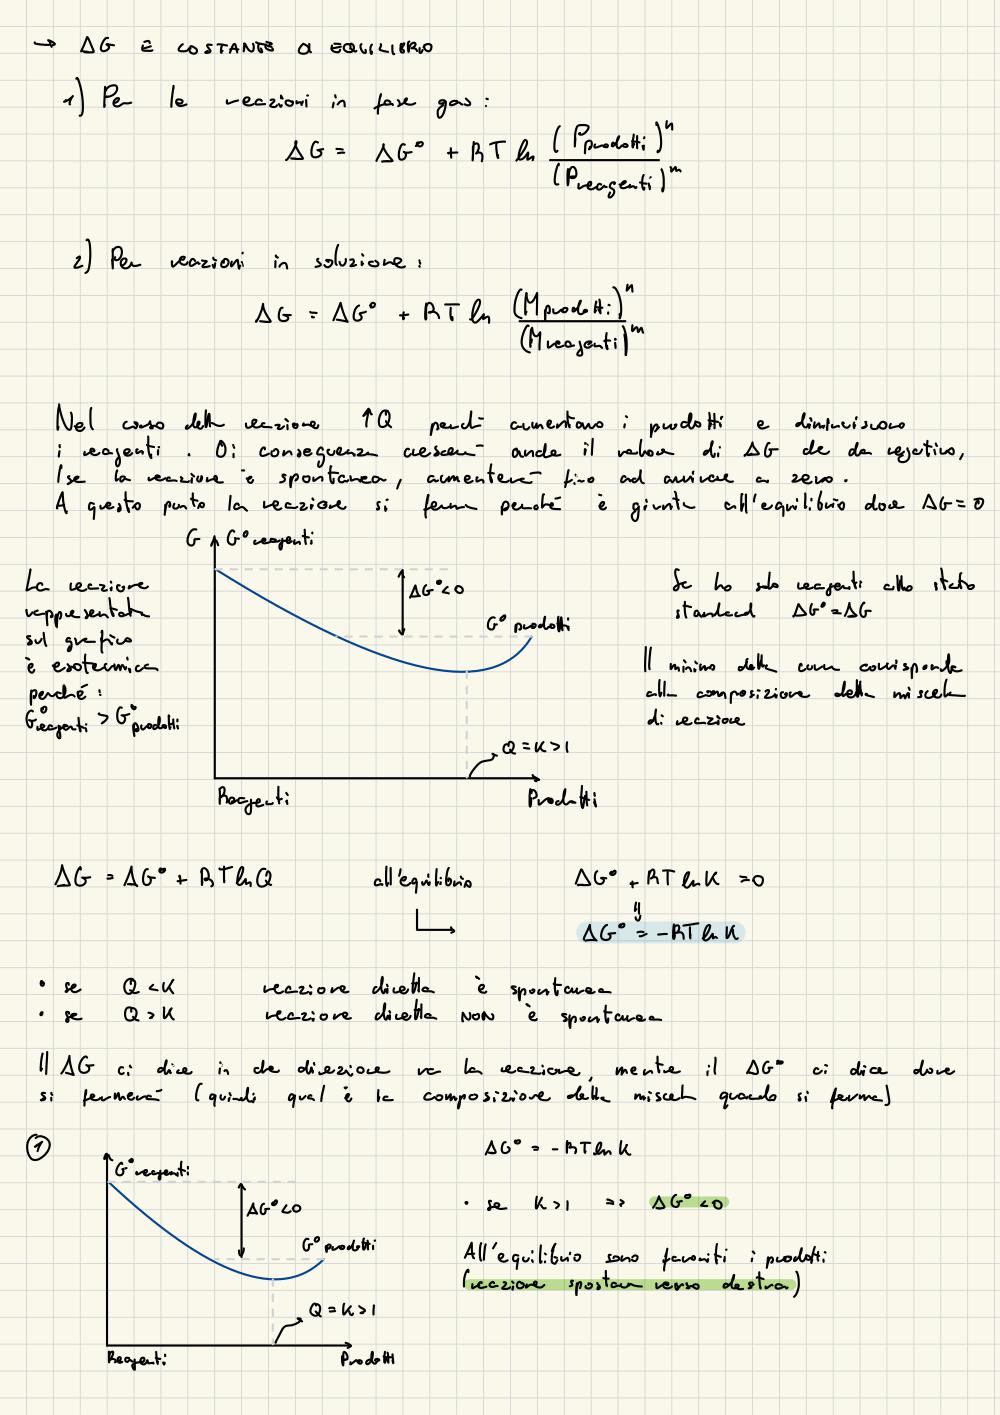 → ΔG E COSTANTE DI EQUILIBRIO
1) Per le reazioni in fase gas :
ΔG = ΔG° + RT ln (Pprodotti)^n / (Preagenti)^m
2) Per reazioni in soluzione :
ΔG = ΔG° + RT ln (Mprodotti)^n / (Mreagenti)^m
Nel corso della reazione ↑Q perché aumentano i prodotti e diminuiscono
i reagenti . Di conseguenza crescerà anche il valore di ΔG che da negativo,
(se la reazione è spontanea, aumenterà fino ad arrivare a zero.
A questo punto la reazione si ferma perché è giunta all'equilibrio dove ΔG=0
G G° reagenti
La reazione
rappresentata
sul grafico
è esotermica
perché :
G°reagenti > G°prodotti
ΔG°<0
G° prodotti
Q = K > 1
Reagenti
Prodotti
Se ho solo reagenti allo stato
standard ΔG°=ΔG
Il minimo della curva corrisponde
alla composizione della miscela
di reazione
ΔG = ΔG° + RT ln Q all'equilibrio ΔG° + RT ln K = 0
⇓
ΔG° = -RT ln K
• se Q < K reazione diretta è spontanea
• se Q > K reazione diretta NON è spontanea
Il ΔG ci dice in che direzione va la reazione, mentre il ΔG° ci dice dove
si fermerà (quindi qual è la composizione della miscela quando si ferma)
①
G° reagenti
ΔG°<0
G° prodotti
Q = K > 1
Reagenti
Prodotti
ΔG° = -RT ln K
• se K > 1 => ΔG° < 0
All'equilibrio sono favoriti i prodotti
(reazione spostata verso destra)